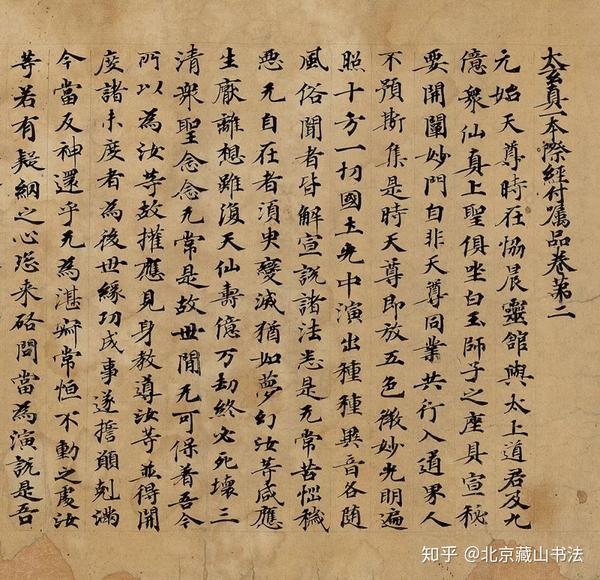 太玄真一本際經付屬品卷第二
元始天尊時在協晨靈館與太上道君及九
億衆仙真上聖俱坐白玉師子之座具宣秘
要開闡妙門自非天尊同業共行入道界人
不預斯集是時天尊即放五色微妙光明遍
照十方一切國土光中演出種種異音各随
風俗聞者皆解宣說諸法悉是无常苦惱穢
惡无自在者須臾變滅猶如夢幻汝等咸應
生厭離想雖復天仙壽億万劫終必死壞三
清衆聖念念无常是故世間无可保者吾今
所以為汝等故權應見身教導汝等並得開
度諸未度者為後世緣功成事遂擔願剋滿
今當反神還乎无為湛𡧯常恒不動之處汝
等若有疑網之心恣来啓問當為演說是吾
知乎 @北京藏山书法